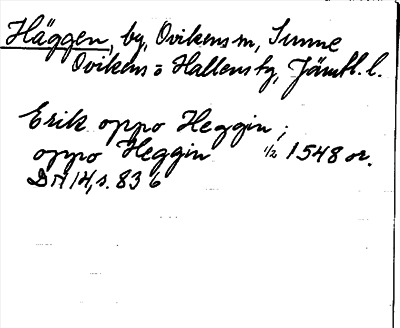 Häggen, by, Ovikens sn, Sunne
Ovikens o Hallens tg, Jämtl. l.
Erik oppo Heggin;
oppo Heggin 1/2 1548 or.
DN 14, s. 836